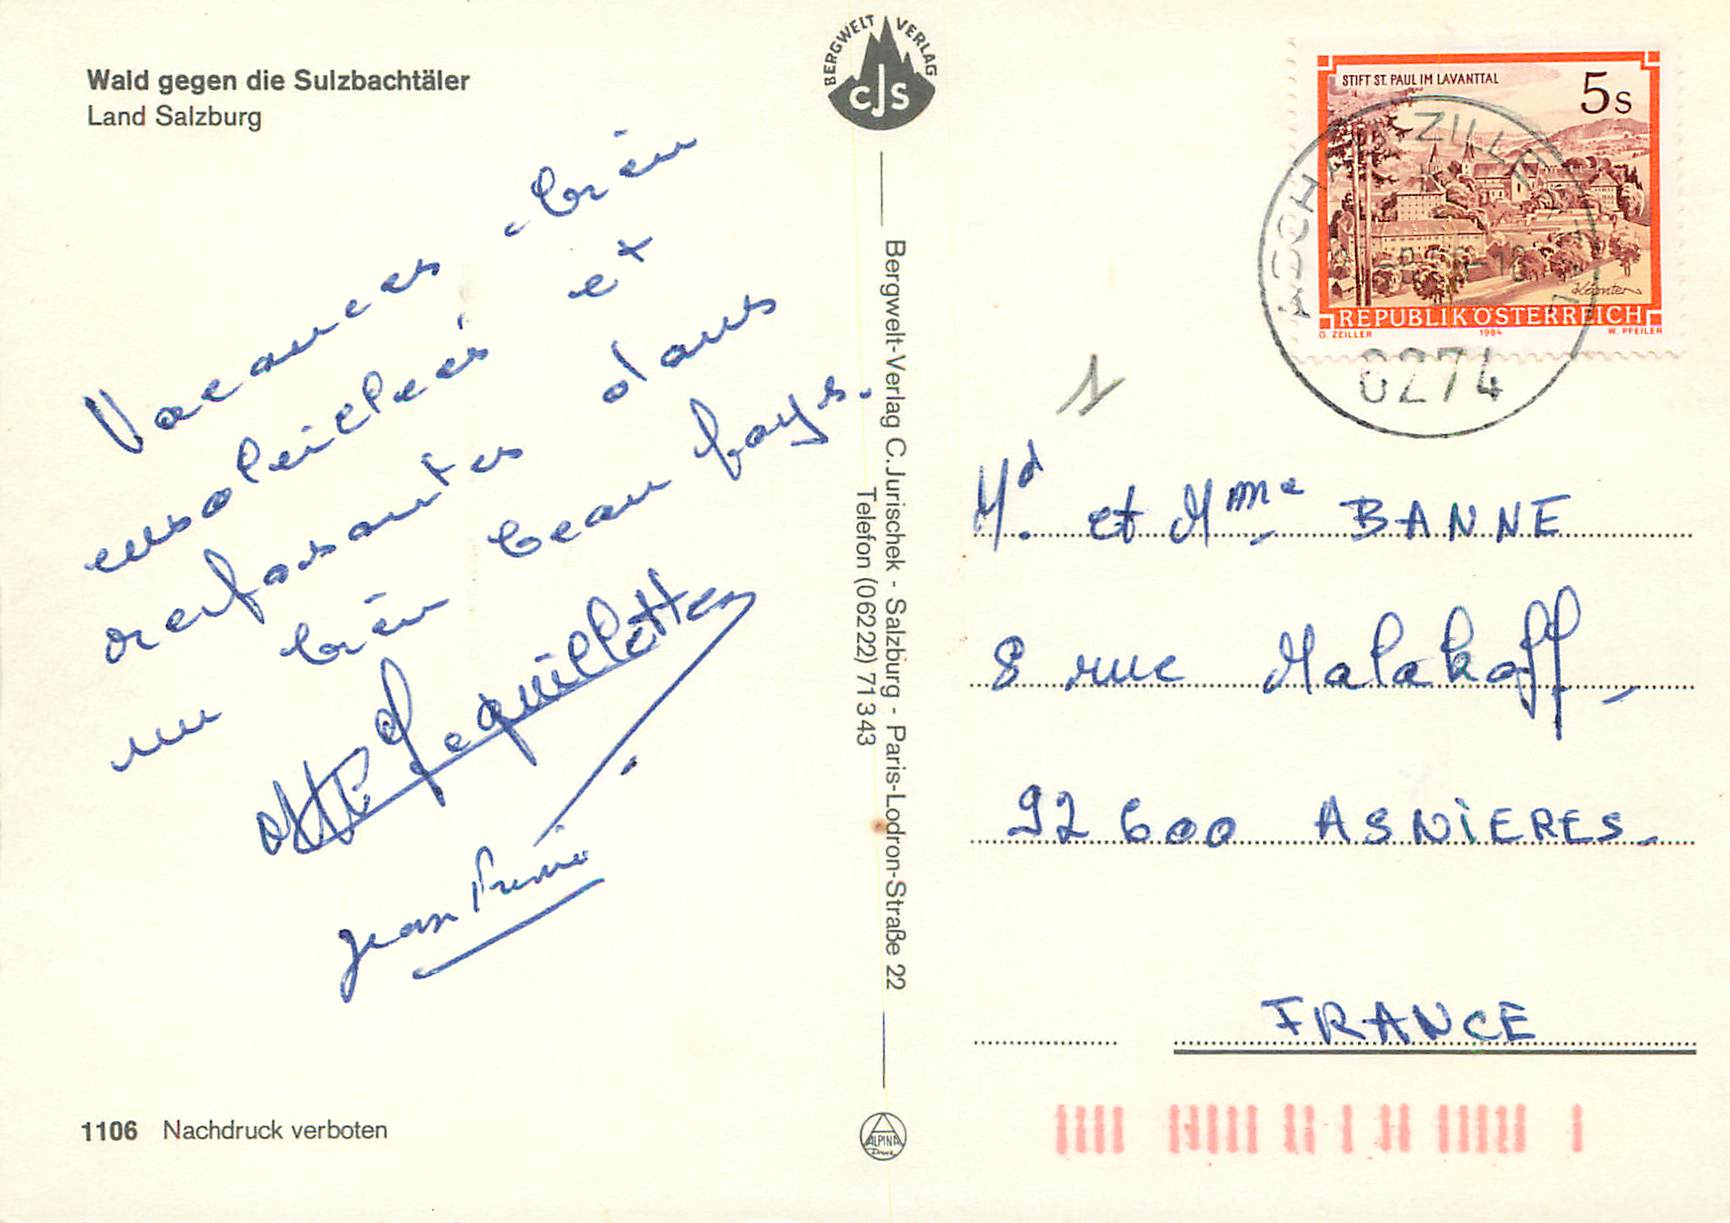 Wald gegen die Sulzbachtäler
Land Salzburg
Vacances bien
ensoleillées et
reposantes dans
un bien beau pays.
Lequillette
Jean Pierre
1106 Nachdruck verboten
BERGWELT VERLAG
CJS
Bergwelt-Verlag C.Jurischek - Salzburg - Paris-Lodron-Straße 22
Telefon (06222) 71343
ALPINA
Druck
STIFT ST. PAUL IM LAVANTTAL
5s
Kärnten
REPUBLIK ÖSTERREICH
O. ZEILLER 1984 W. PFEILER
ASCHAU ZILLERTAL
6274
1
Mr. et Mme BANNE
8 rue Malakoff
92600 ASNIERES
FRANCE